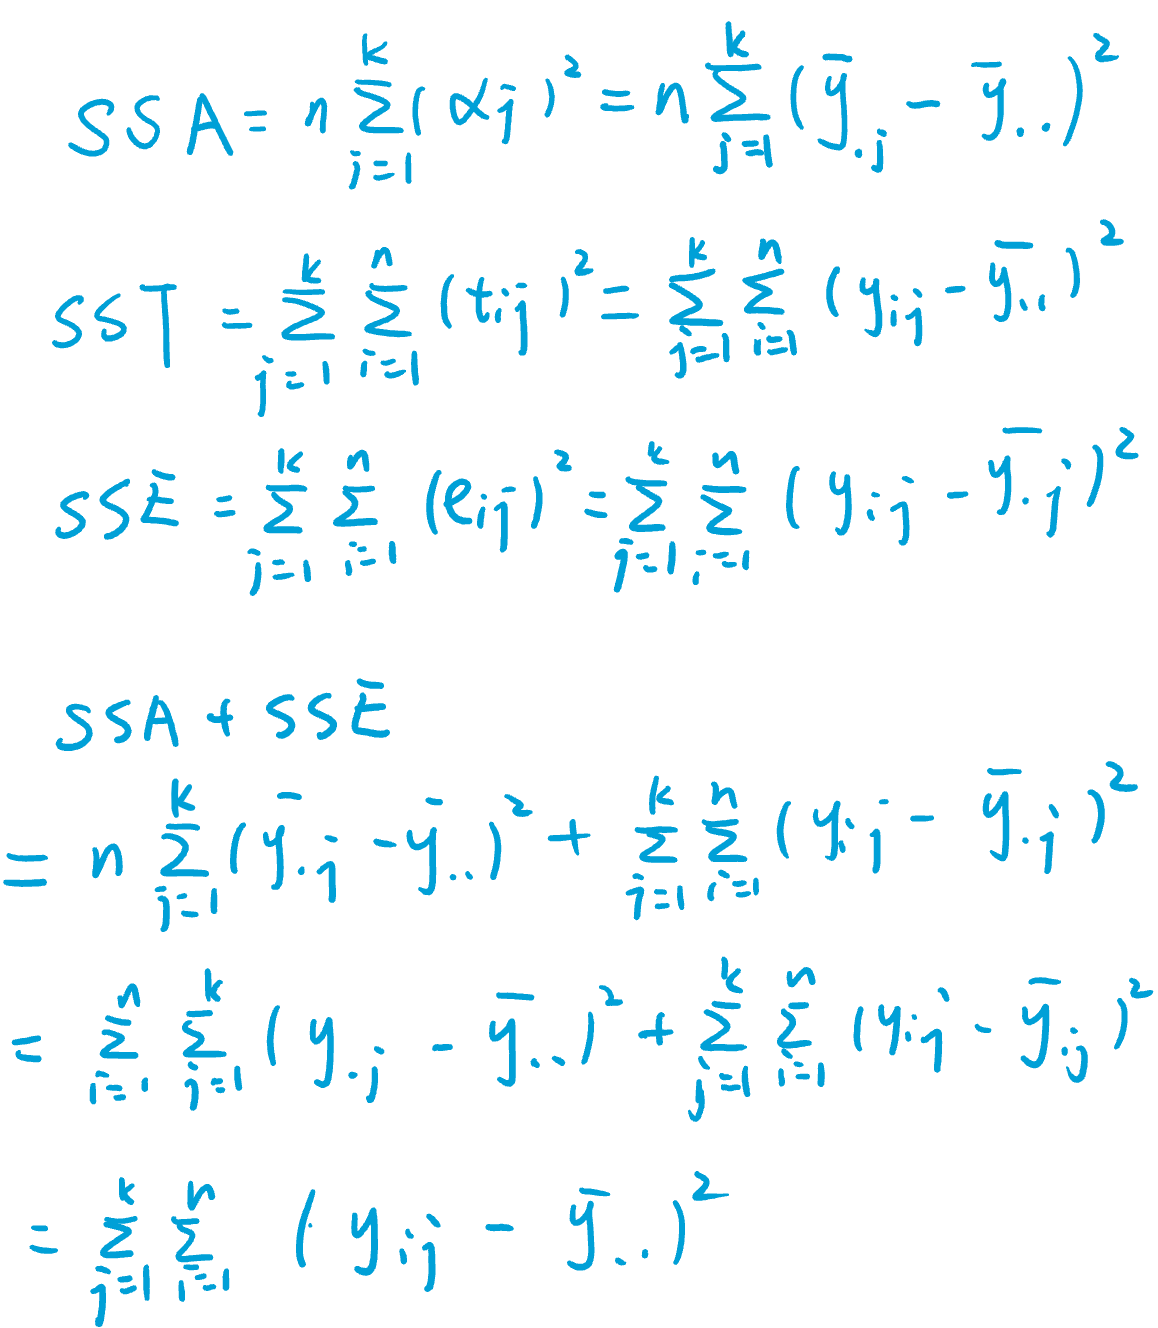 SSA = n ∑_{j=1}^{k} (αj)² = n ∑_{j=1}^{k} (ȳ.j − ȳ..)²
SST = ∑_{j=1}^{k} ∑_{i=1}^{n} (tij)² = ∑_{j=1}^{k} ∑_{i=1}^{n} (yij − ȳ..)²
SSE = ∑_{j=1}^{k} ∑_{i=1}^{n} (eij)² = ∑_{j=1}^{k} ∑_{i=1}^{n} (yij − ȳ.j)²
SSA + SSE
= n ∑_{j=1}^{k} (ȳ.j − ȳ..)² + ∑_{j=1}^{k} ∑_{i=1}^{n} (yij − ȳ.j)²
= ∑_{i=1}^{n} ∑_{j=1}^{k} (y.j − ȳ..)² + ∑_{j=1}^{k} ∑_{i=1}^{n} (yij − ȳ.j)²
= ∑_{j=1}^{k} ∑_{i=1}^{n} (yij − ȳ..)²